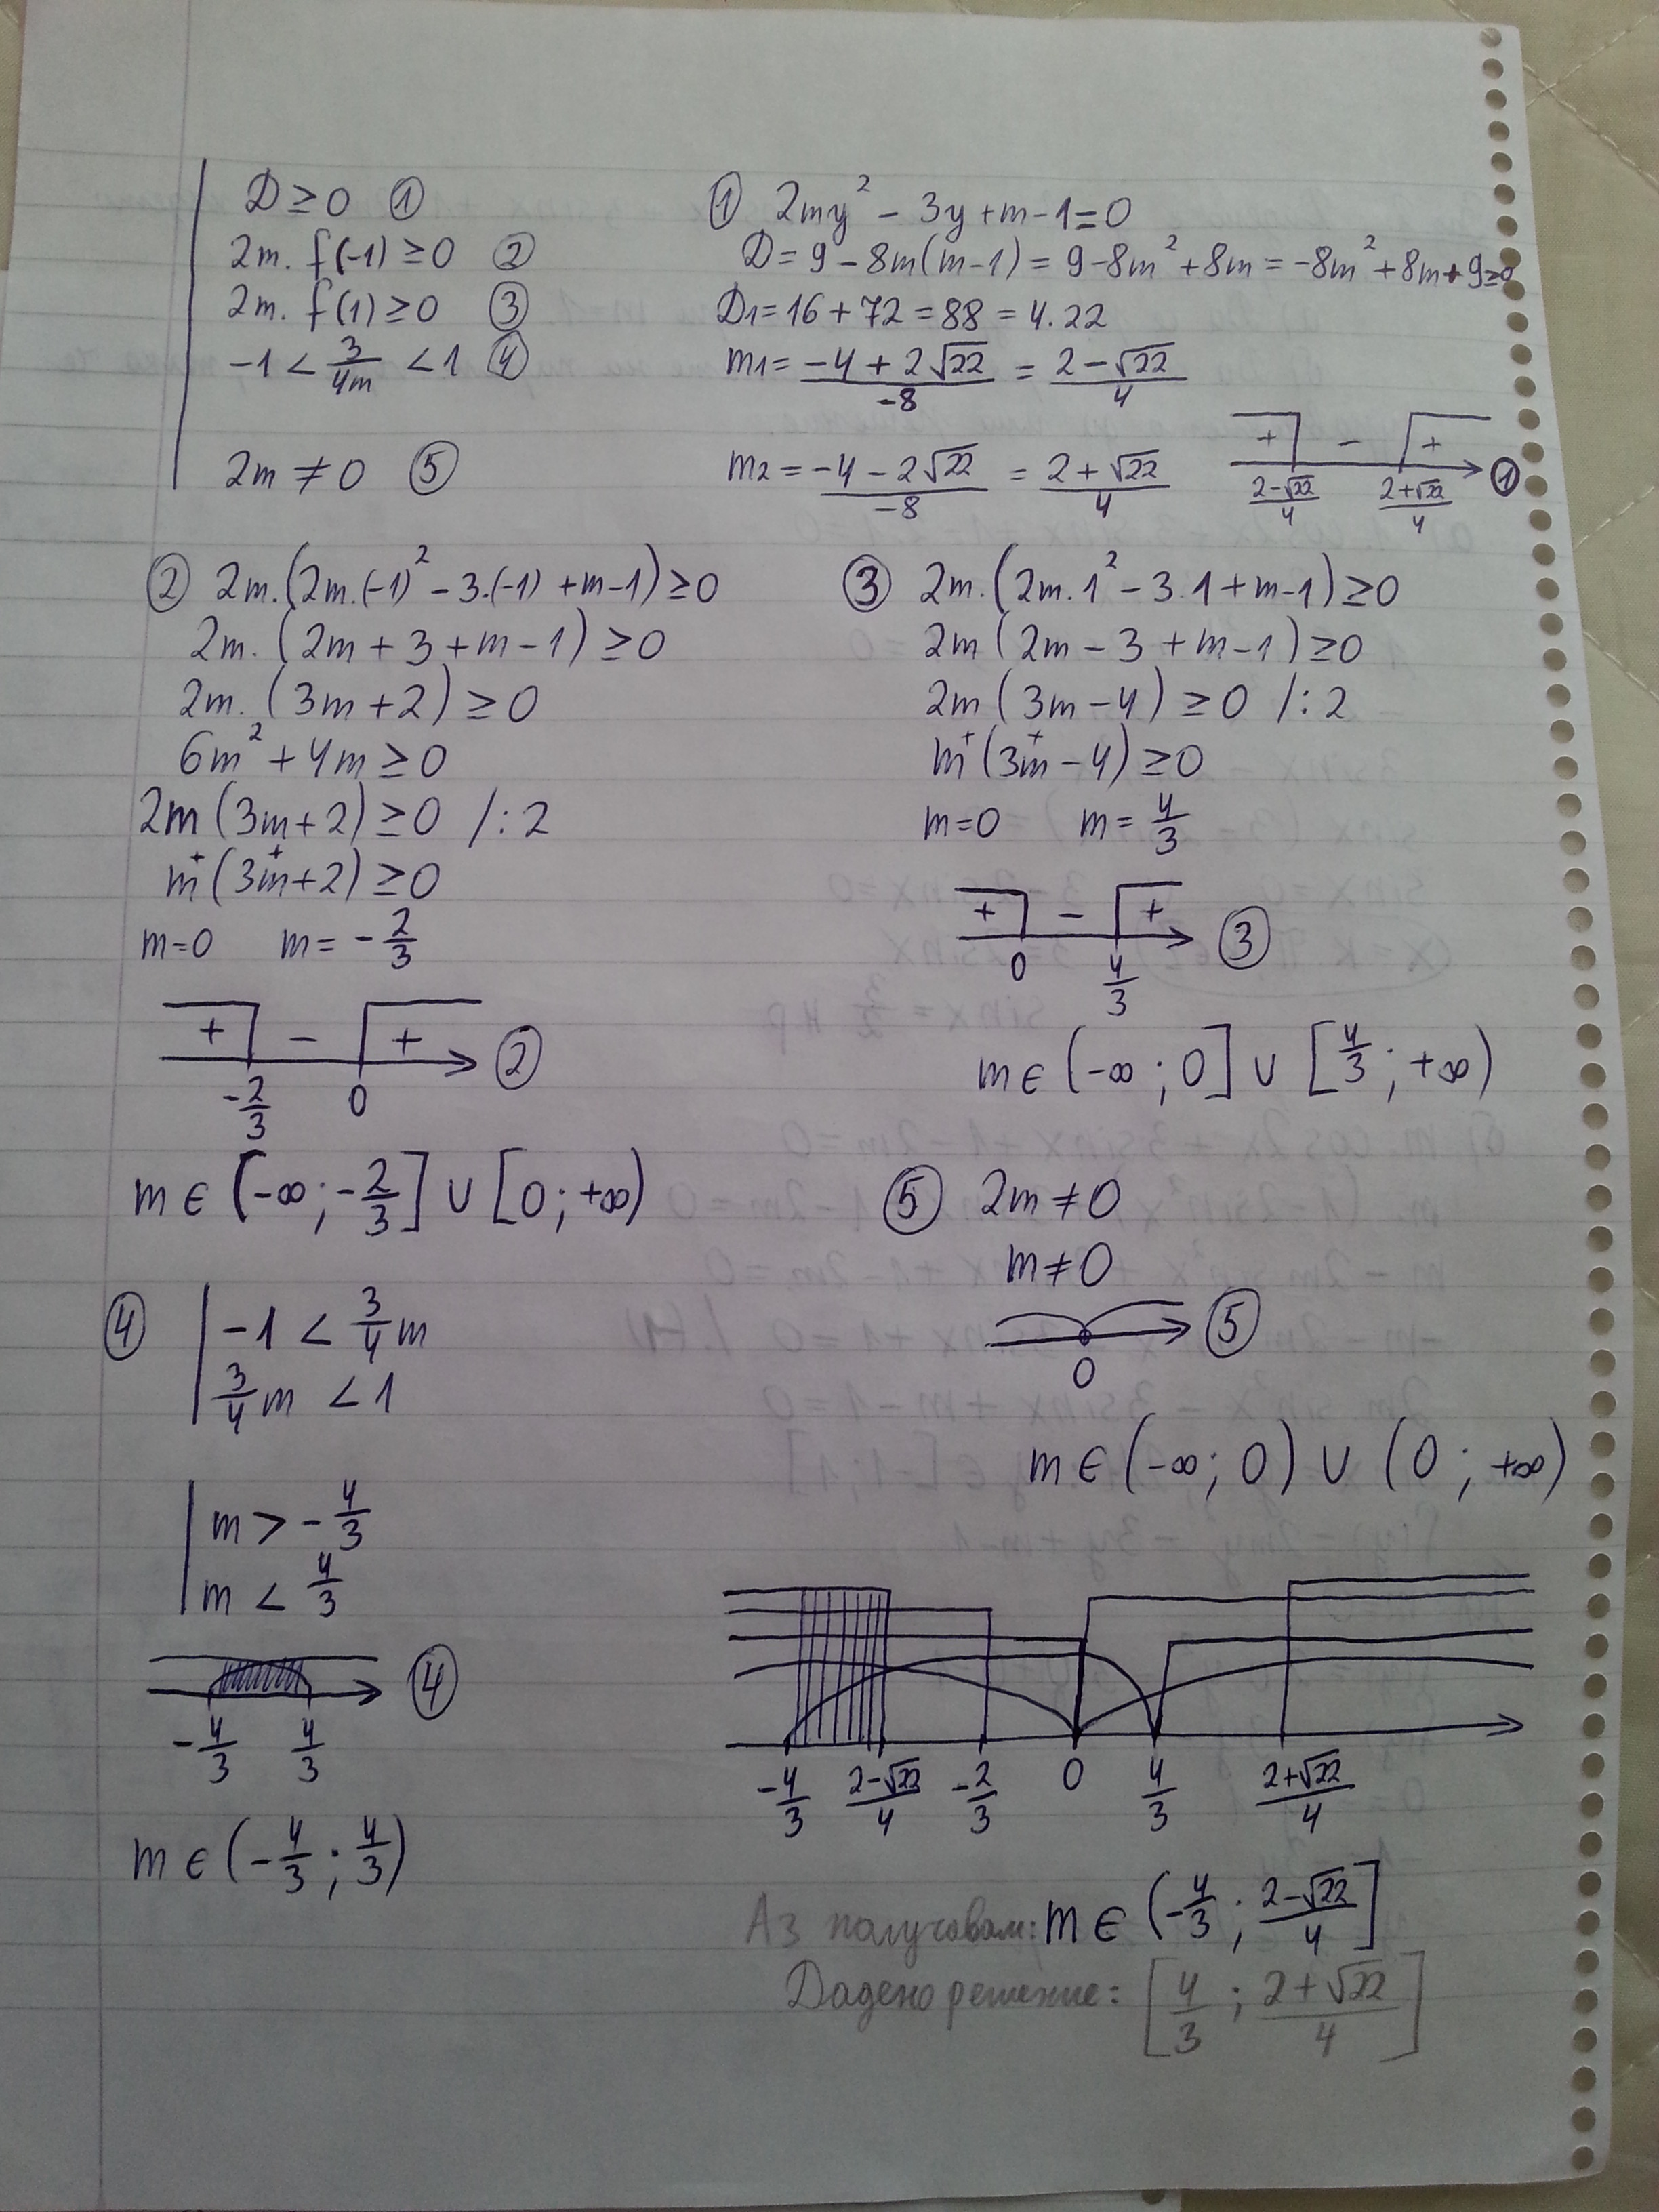 D ≥ 0 ①
2m. f(-1) ≥ 0 ②
2m. f(1) ≥ 0 ③
-1 < 3/4m < 1 ④
2m ≠ 0 ⑤
① 2my² - 3y + m - 1 = 0
D = 9 - 8m(m-1) = 9 - 8m² + 8m = -8m² + 8m + 9 ≥ 0
D1 = 16 + 72 = 88 = 4.22
m1 = (-4 + 2√22)/-8 = (2 - √22)/4
m2 = (-4 - 2√22)/-8 = (2 + √22)/4
+ - +
(2-√22)/4 (2+√22)/4 ①
② 2m.(2m.(-1)² - 3.(-1) + m-1) ≥ 0
2m. (2m + 3 + m - 1) ≥ 0
2m. (3m + 2) ≥ 0
6m² + 4m ≥ 0
2m (3m+2) ≥ 0 /:2
m⁺(3m⁺+2) ≥ 0
m=0 m = -2/3
+ - + ②
-2/3 0
m ∈ (-∞; -2/3] ∪ [0; +∞)
③ 2m.(2m.1² - 3.1 + m-1) ≥ 0
2m (2m - 3 + m - 1) ≥ 0
2m (3m - 4) ≥ 0 /:2
m⁺(3m⁺ - 4) ≥ 0
m=0 m = 4/3
+ - + ③
0 4/3
m ∈ (-∞; 0] ∪ [4/3; +∞)
④ -1 < 3/4 m
3/4 m < 1
m > -4/3
m < 4/3
④
-4/3 4/3
m ∈ (-4/3; 4/3)
⑤ 2m ≠ 0
m ≠ 0
⑤
0
m ∈ (-∞; 0) ∪ (0; +∞)
-4/3 (2-√22)/4 -2/3 0 4/3 (2+√22)/4
Аз получавам: m ∈ (-4/3; (2-√22)/4]
Дадено решение: [4/3; (2+√22)/4]